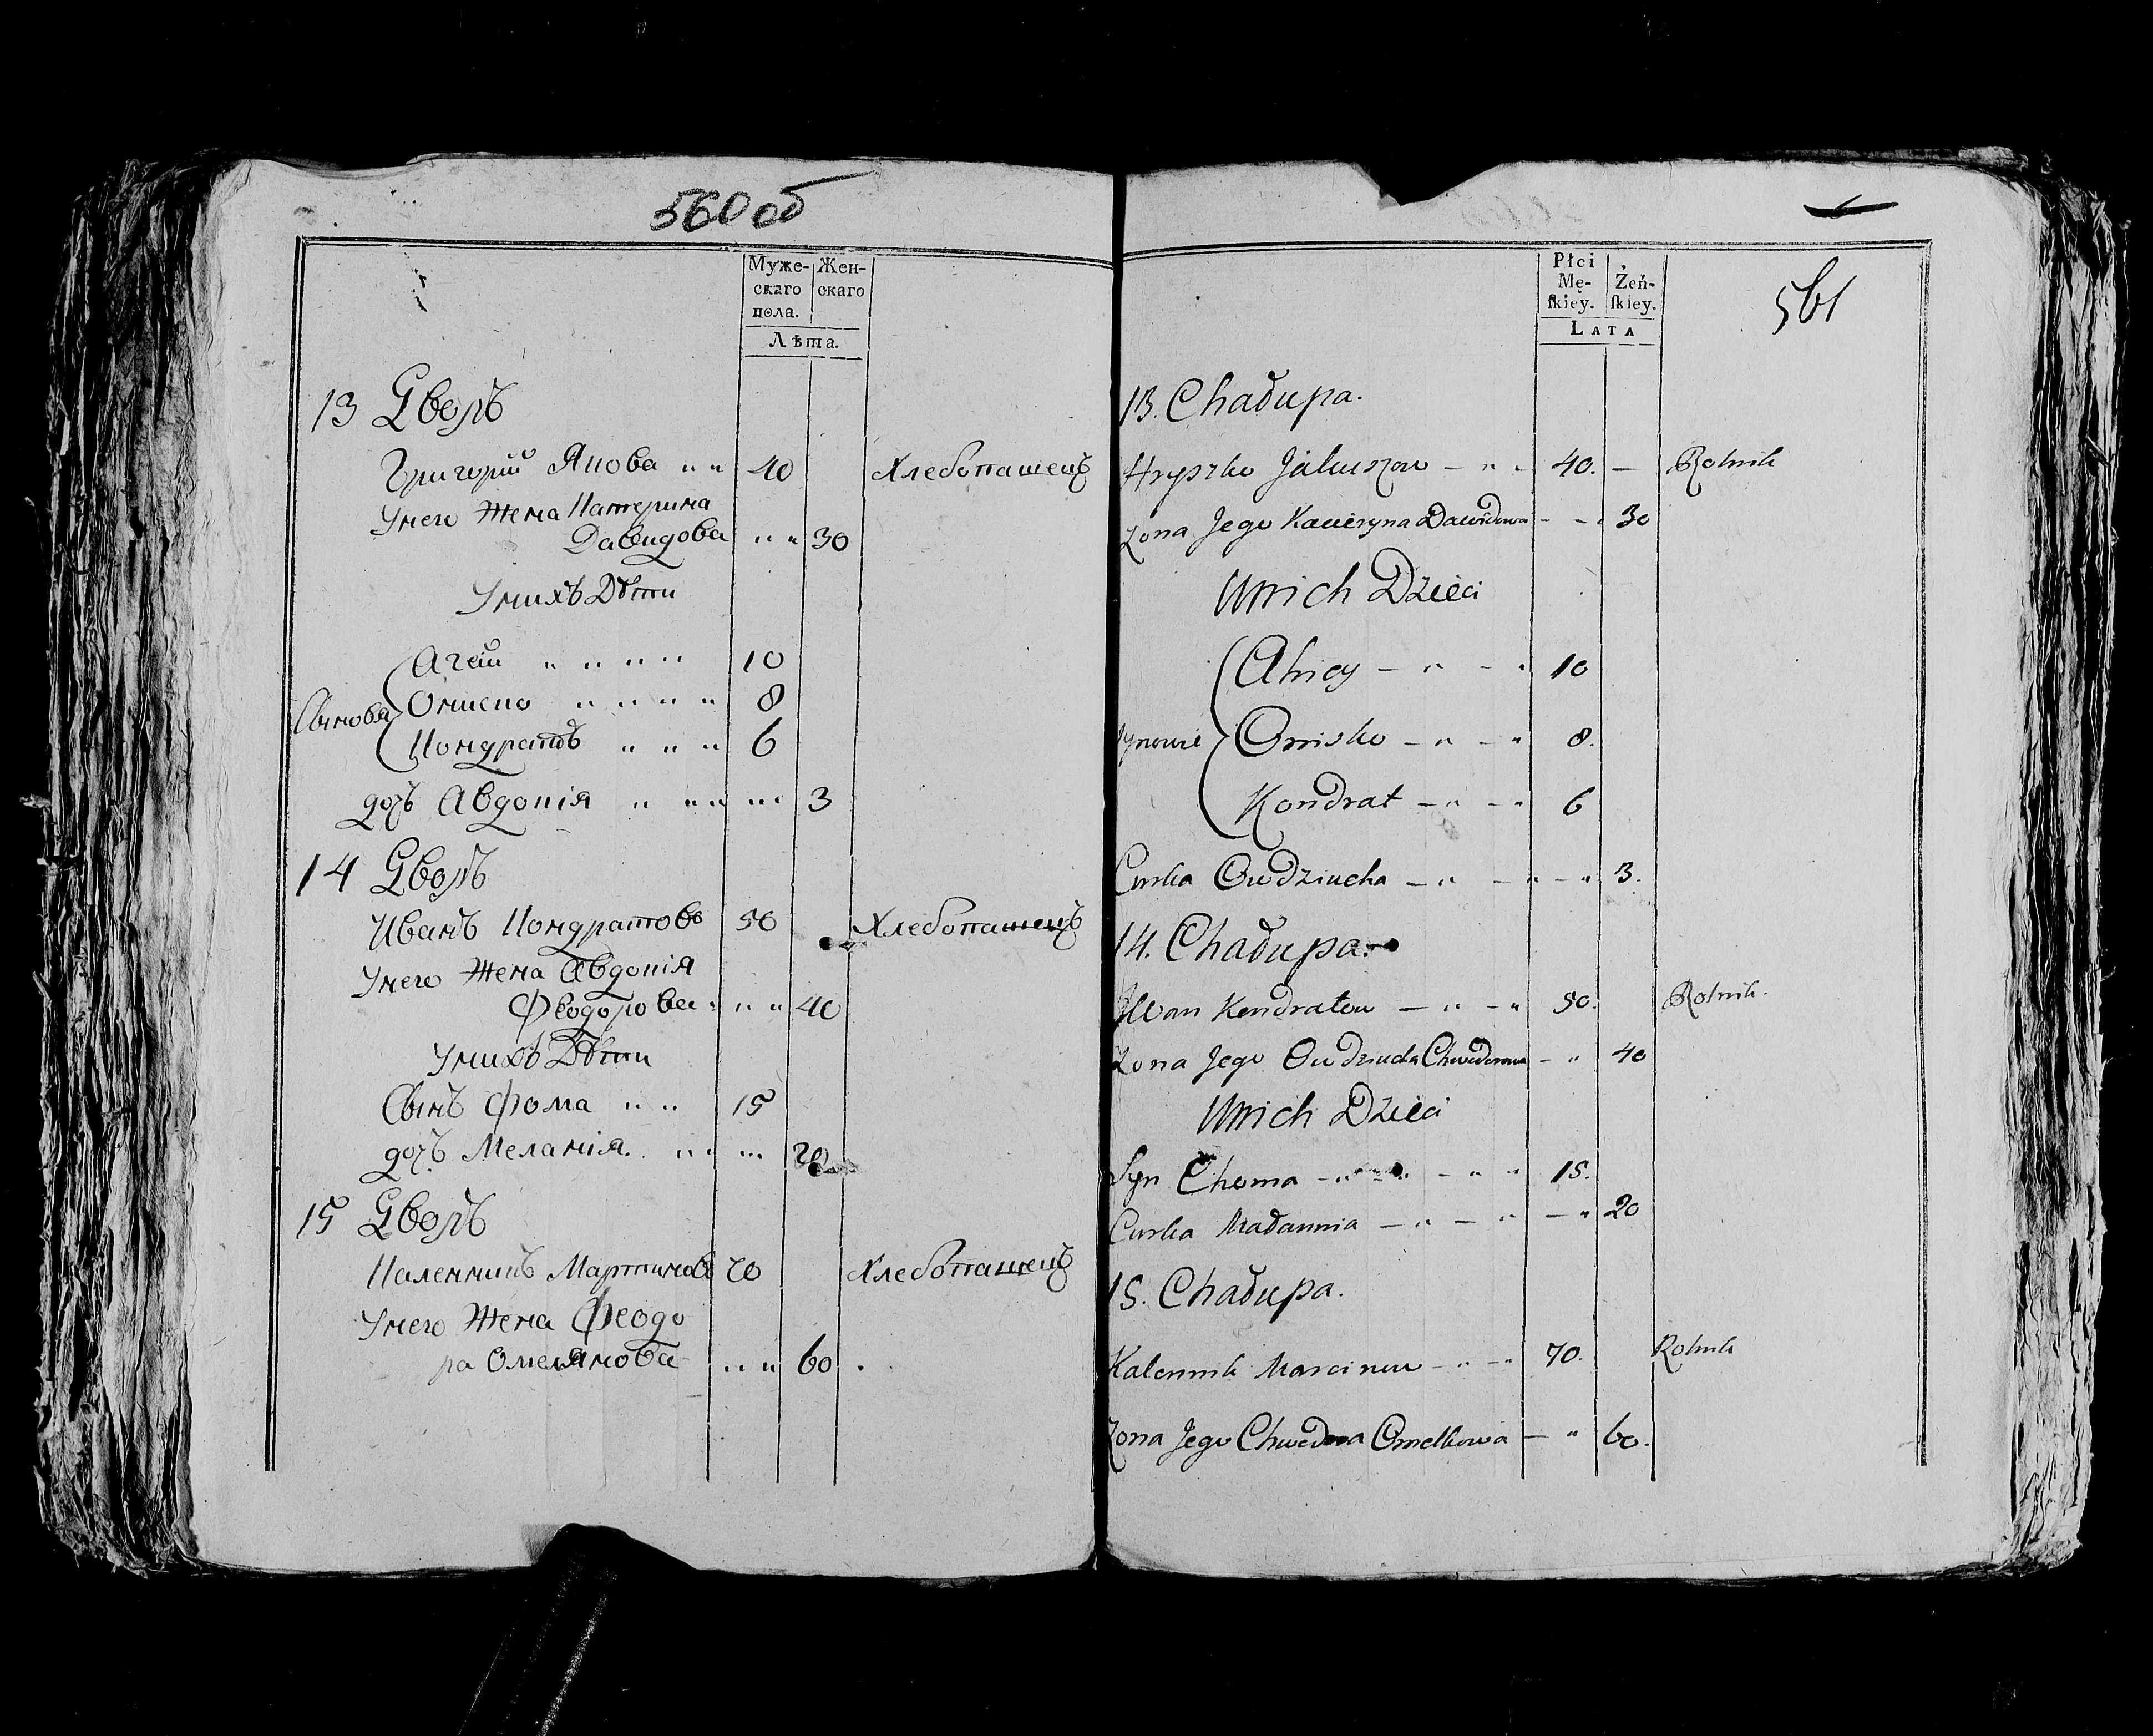 560 об
Муже-
скаго
пола.
Жен-
скаго
Лѣта.
13 Дворъ
Григорий Якова 40 Хлебопашецъ
Унего Жена Катерина
Давидова 30
Унихъ Дѣти
Сыновя
Агей 10
Ониско 8
Кондратъ 6
дочь Авдокія 3
14 Дворъ
Иванъ Кондратовъ 50 Хлебопашецъ
Унего Жена Авдокія
Феодорова 40
Унихъ Дѣти
Сынъ Фома 15
дочь Меланія 20
15 Дворъ
Каленикъ Мартиновъ 70 Хлебопашецъ
Унего Жена Феодо
ра Омелянова 60
561
Płci
Mę-
ſkiey.
Żeń-
ſkiey.
LATA
13. Chałupa.
Hryszko 40. Rolnik
Zona Jego Kacieryna Dawidowa 30
Unich Dzieci
synowie
Ahiey 10
Onisko 8.
Kondrat 6
Curka Oudziucha 3.
14. Chałupa.
Iwan Kondratow 50. Rolnik.
Zona Jego Oudziucha Chwedorowa 40
Unich Dzieci
Syn Choma 15.
Curka Małannia 20
15. Chałupa.
Kalennik Marcinow 70. Rolnik
Zona Jego Chwedora Omelkowa 60.